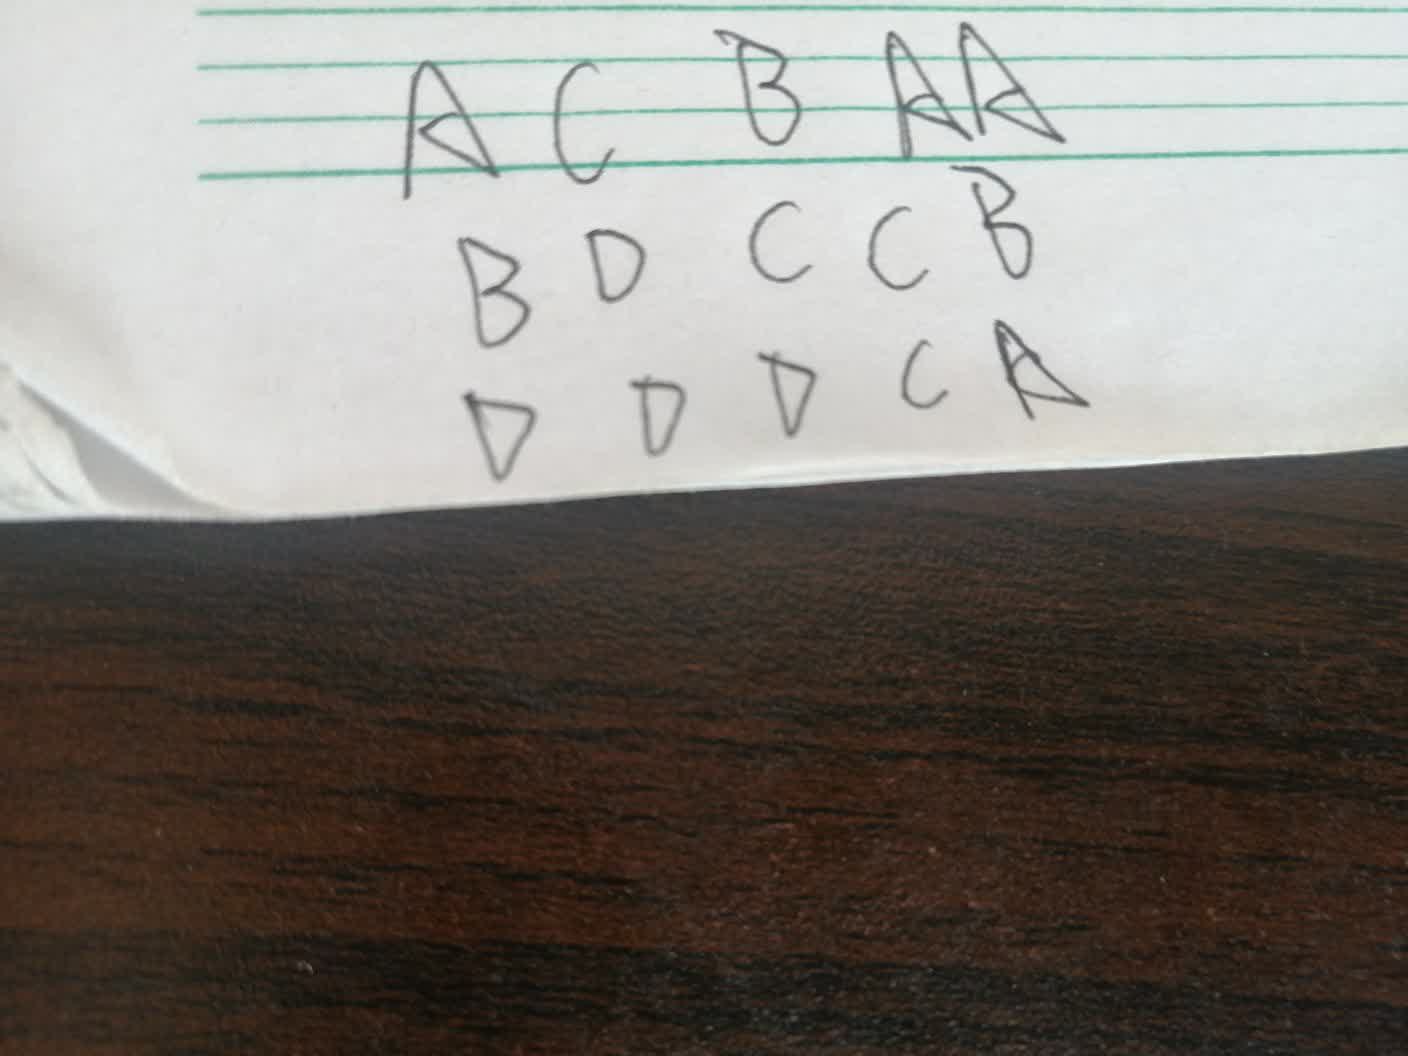 A C B A A
B D C C B
D D D C A